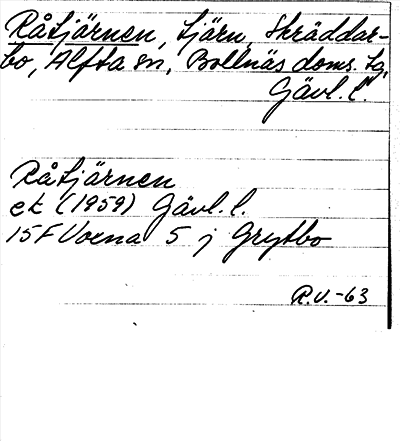 Råtjärnen, tjärn, Skräddar-
bo, Alfta sn, Bollnäs doms. tg,
Gävl. l.
Råtjärnen
ek (1959) Gävl. l.
15F Voxna 5 j Grytbo
R.V.-63